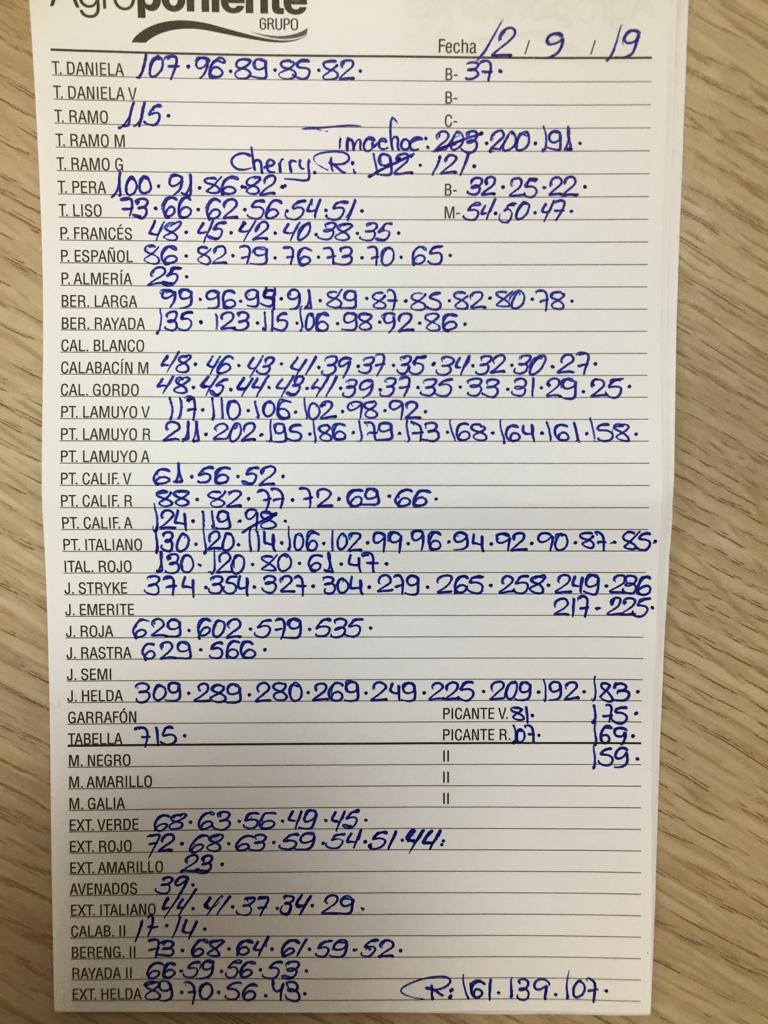 Agroponiente
GRUPO
Fecha 12 / 9 / 19
T. DANIELA 107·96·89·85·82· B- 37·
T. DANIELA V B-
T. RAMO 115· C-
T. RAMO M imachoc: 203·200·191·
T. RAMO G Cherry R: 192·121·
T. PERA 100·91·86·82· B- 32·25·22·
T. LISO 73·66·62·56·54·51· M- 54·50·47·
P. FRANCÉS 48·45·42·40·38·35·
P. ESPAÑOL 86·82·79·76·73·70·65·
P. ALMERÍA 25·
BER. LARGA 99·96·94·91·89·87·85·82·80·78·
BER. RAYADA 135·123·115·106·98·92·86·
CAL. BLANCO
CALABACÍN M 48·46·43·41·39·37·35·34·32·30·27·
CAL. GORDO 48·45·44·43·41·39·37·35·33·31·29·25·
PT. LAMUYO V 117·110·106·102·98·92·
PT. LAMUYO R 211·202·195·186·179·173·168·164·161·158·
PT. LAMUYO A
PT. CALIF. V 61·56·52·
PT. CALIF. R 88·82·77·72·69·66·
PT. CALIF. A 124·119·98·
PT. ITALIANO 130·120·114·106·102·99·96·94·92·90·87·85·
ITAL. ROJO 130·120·80·61·47·
J. STRYKE 374·354·327·304·279·265·258·249·236
J. EMERITE 217·225·
J. ROJA 629·602·579·535·
J. RASTRA 629·566·
J. SEMI
J. HELDA 309·289·280·269·249·225·209·192·183·
GARRAFÓN PICANTE V. 81· 175·
TABELLA 715· PICANTE R. 107· 169·
M. NEGRO II 159·
M. AMARILLO II
M. GALIA II
EXT. VERDE 68·63·56·49·45·
EXT. ROJO 72·68·63·59·54·51·44·
EXT. AMARILLO 23·
AVENADOS 39·
EXT. ITALIANO 44·41·37·34·29·
CALAB. II 17·14·
BERENG. II 73·68·64·61·59·52·
RAYADA II 66·59·56·53·
EXT. HELDA 89·70·56·43· R: 161·139·107·